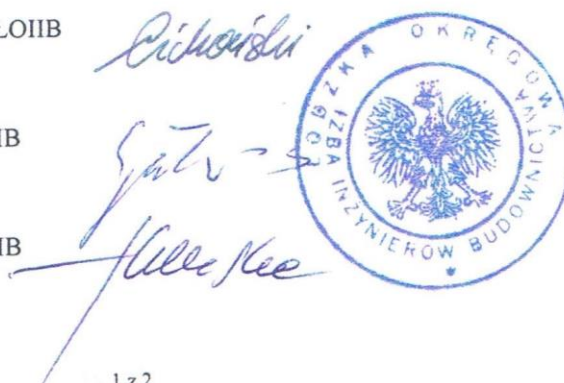 ŁOIIB
Cichoński
IB
IB
ŁÓDZKA OKRĘGOWA
IZBA INŻYNIERÓW BUDOWNICTWA
1 z 2